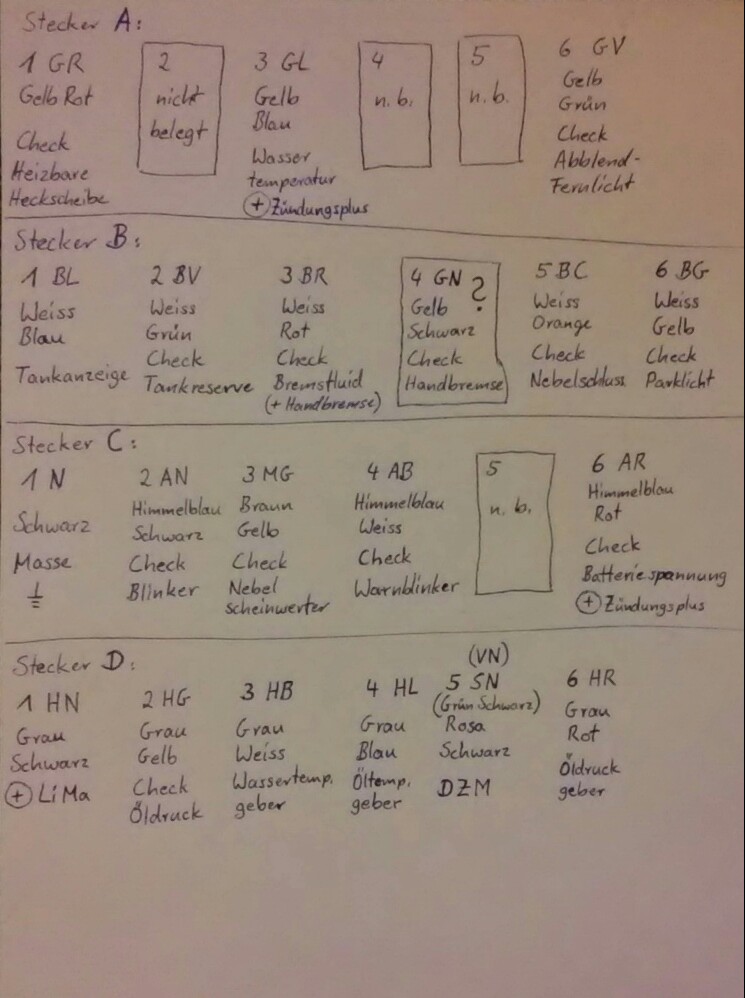 Stecker A:
1 GR
Gelb Rot
Check
Heizbare
Heckscheibe
2
nicht
belegt
3 GL
Gelb
Blau
Wasser
temperatur
+ Zündungsplus
4
n. b.
5
n. b.
6 GV
Gelb
Grün
Check
Abblend-
Fernlicht
Stecker B:
1 BL
Weiss
Blau
Tankanzeige
2 BV
Weiss
Grün
Check
Tankreserve
3 BR
Weiss
Rot
Check
Bremsfluid
(+ Handbremse)
4 GN ?
Gelb
Schwarz
Check
Handbremse
5 BC
Weiss
Orange
Check
Nebelschluss
6 BG
Weiss
Gelb
Check
Parklicht
Stecker C:
1 N
Schwarz
Masse
2 AN
Himmelblau
Schwarz
Check
Blinker
3 MG
Braun
Gelb
Check
Nebel
scheinwerter
4 AB
Himmelblau
Weiss
Check
Warnblinker
5
n. b.
6 AR
Himmelblau
Rot
Check
Batteriespannung
+ Zündungsplus
Stecker D:
1 HN
Grau
Schwarz
+ LiMa
2 HG
Grau
Gelb
Check
Öldruck
3 HB
Grau
Weiss
Wassertemp.
geber
4 HL
Grau
Blau
Öltemp.
geber
(VN)
5 SN
(Grün Schwarz)
Rosa
Schwarz
DZM
6 HR
Grau
Rot
Öldruck
geber